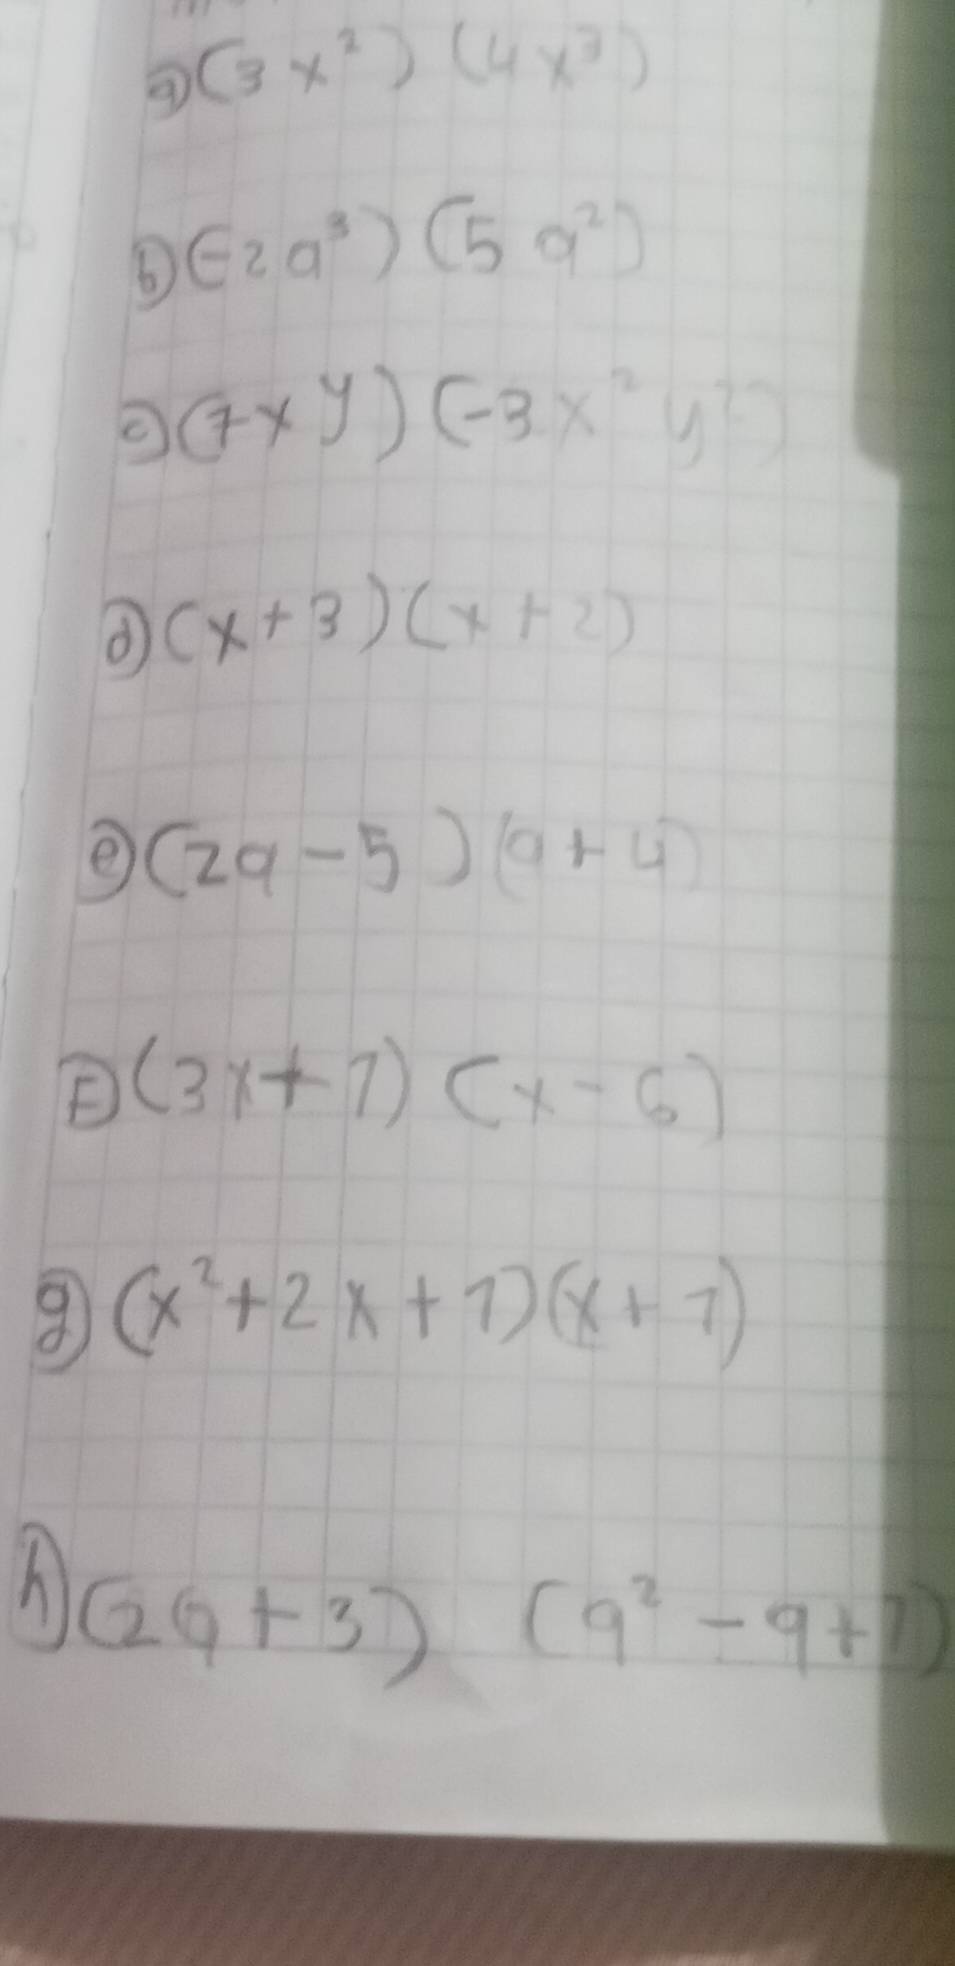 a) (3x²) (4x³)
b) (-2a³) (5a²)
c) (7xy) (-3x²y²)
d) (x+3)(x+2)
e) (2a-5)(a+4)
F) (3x+1) (x-6)
g) (x²+2x+1)(x+1)
h) (2a+3) (a²-a+1)